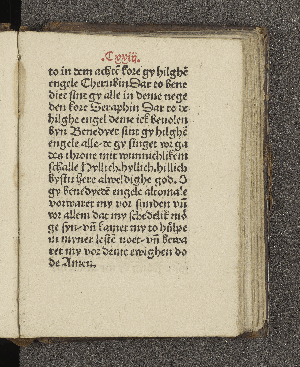 .Cxxiij.
to in dem achtē kore gy hilghē
engele Cherubin Dar to bene
diet sint gy alle in deme nege
den kore Seraphin Dar to de
hilghe engel deme ick beuolen
byn Benedyet sint gy hilghē
engele alle de gy singet vor ga
des throne mit wunnichlikem
schalle Hyllich. hyllich. hillich
bystu here alweldighe god. O
gy benedyedē engele altomale
vorwaret my vor sunden vn̄
vor allem dat my schedelik mö
ge syn. vn̄ kamet my to hulpe
in myner lestē noet. vn̄ bewa
ret my vor deme ewighen do
de Amen.